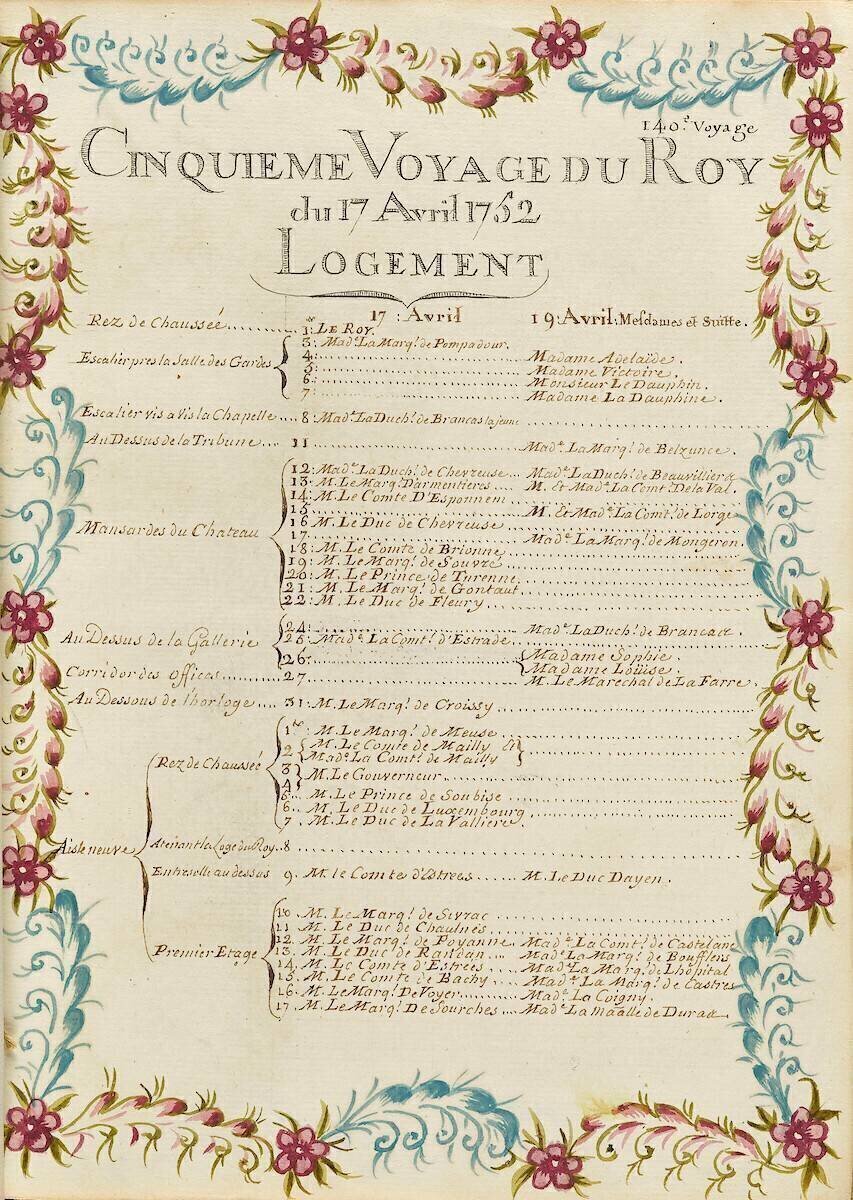 140.e Voyage
CINQUIEME VOYAGE DU ROY
du 17 Avril 1752
LOGEMENT
17 : Avril 19 : Avril : Mesdames et Suitte.
Rez de Chaussée 1. LE ROY.
Escalier pres la Salle des Gardes
3. Made. La Marq.e de Pompadour.
4. Madame Adelaïde.
5. Madame Victoire.
6. Monsieur Le Dauphin.
7 Madame La Dauphine.
Escalier vis a vis la Chapelle 8. Made. La Duch.e de Brancas la jeune
Au Dessus de la Tribune 11 Made. La Marq.e de Belzunce.
Mansardes du Chateau
12. Made. La Duch.e de Chevreuse Made. La Duch.e de Beauvilliers
13. M. Le Marq.s Darmentieres M. et Made. La Comt.e De la Val.
14. M. Le Comte D'Esponnem
15 M. et Made. La Comt.e de Lorge
16 M. Le Duc de Chevreuse
17 Made. La Marq.e de Mongeron.
18. M. Le Comte de Brionne
19. M. Le Marq.s de Souvré
20. M. Le Prince de Turenne
21. M. Le Marq.s de Gontaut
22. M. Le Duc de Fleury
Au Dessus de la Gallerie
24. Made. La Duch.e de Brancas
25. Made. La Comt.e d'Estrade
26. Madame Sophie
Madame Loüise
Corridor des offices 27 M. Le Marechal de La Farre.
Au Dessous de l'horloge 31. M. Le Marq.s de Croissy
Aisle neuve
Rez de Chaussée
1. M. Le Marq.s de Meuse
2 M. Le Comte de Mailly Et
Made. La Comt.e de Mailly
3
4 M. Le Gouverneur
5. M. Le Prince de Soubise
6. M. Le Duc de Luxembourg
7. M. Le Duc de La Valliere
Atenant la Loge du Roy. 8
Entreselle au dessus 9. M. le Comte d'Estrees M. Le Duc Dayen.
Premier Etage
10 M. Le Marq.s de Sivrac
11 M. Le Duc de Chaulnes
12. M. Le Marq.s de Poyanne Made. La Comt.e de Castelane
13. M. Le Duc de Randan Made. La Marq.e de Boufflers
14. M. Le Comte d'Estrees Made. La Marq.e de Lhôpital
15. M. Le Comte de Bachy Made. La Marq.e de Castres
16. M. Le Marq.s De Voyer Made. La Coigny.
17. M. Le Marq.s De Sourches Made. La Maalle de Duras